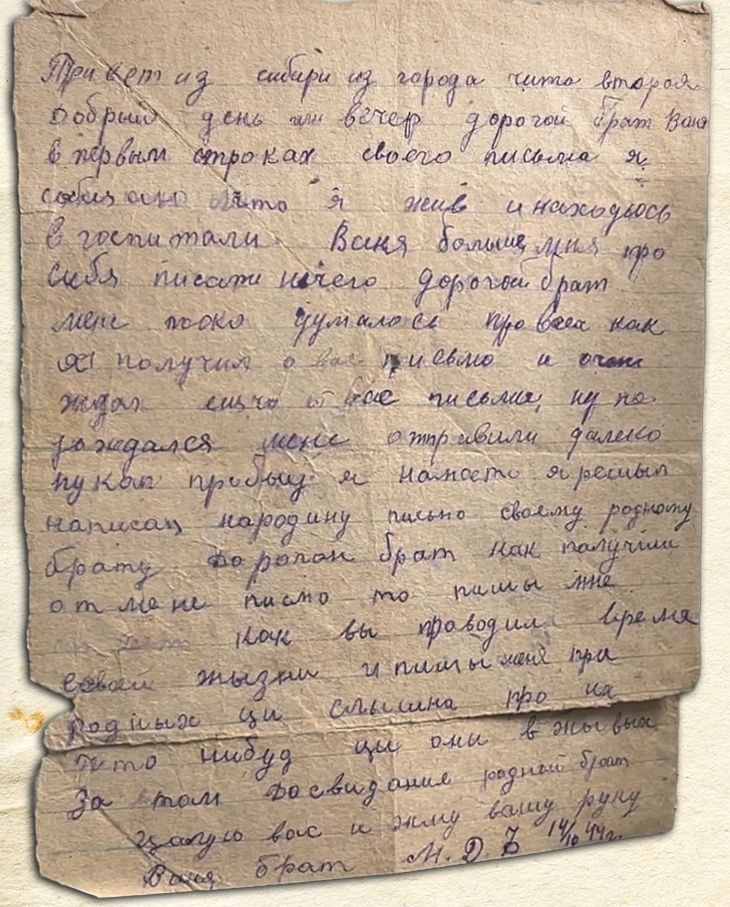 Привет из сибири из города чита вторая
Добрый день или вечер дорогой брат Ваня
в первым строках своего письма я
что я жив и нахожусь
в госпитали. Ваня больше мня про
себя писати ничего дорогой брат
мене пока думалось про всех как
я получил о вас письмо и очень
ждал ищчо от вас письма, ну не
дождался мене отправили далеко
ну как прибыц я на место я решыл
написац народину письмо своему родному
брату Дорогой брат как получиш
от мене писмо то пишы мне
как вы проводили время
своей жызни и пишы мене при
родных ци слышна про на
што нибуд ци они в жывых
За этом Досвидание родной брат
Цалую вас и жму вашу руку
Ваня брат М. Д. Б 14/10 44 г.